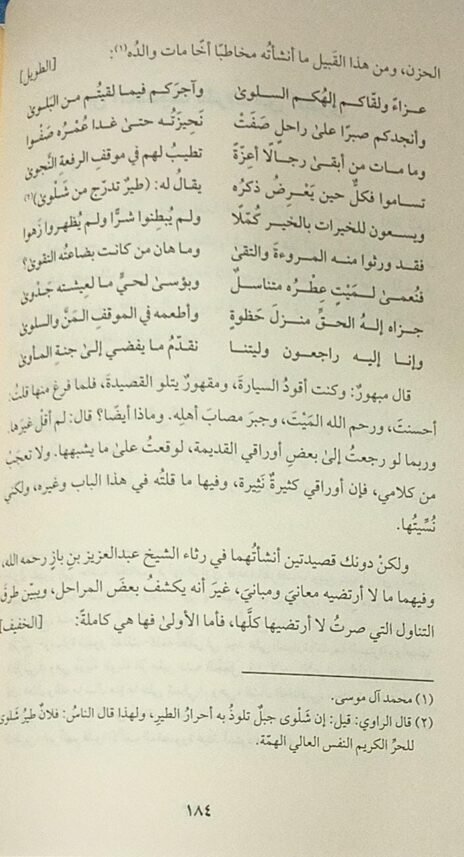 الحزن، ومن هذا القَبيل ما أنشأتُه مخاطبًا أخًا مات والدُه(١): [الطويل]
عـزاءً ولقّاكم إلهُكم السلوىٰ وآجرَكم فيما لقيتُم من البَلوىٰ
وأنجدكم صبرًا علىٰ راحلٍ صَفَتْ نَحيزَتُه حتىٰ غدا عُمْرُه صَفْوا
وما مات من أبقىٰ رجالًا أعِزّةً تطيبُ لهم في موقفِ الرفعةِ النَّجوىٰ
تساموا فكلٌّ حين يَعْرِضُ ذكرُه يقالُ له: (طيرٌ تدرّج من شَلْوىٰ)(٢)
ويسعون للخيرات بالخير كُمّلًا ولم يُبطِنوا شرًّا ولم يُظهروا زَهوا
فقد ورثوا منه المروءةَ والتقىٰ وما هان من كانت بضاعتُه التقوىٰ؟
فنُعمىٰ لـمَيْتٍ عِطْرُه متناسلٌ وبؤسىٰ لحيٍّ ما لعِيشته جَدْوىٰ
جزاه إلهُ الحقِّ منزلَ حَظوةٍ وأطعمه في الموقف المَنَّ والسلوىٰ
وإنا إليه راجعون وليتنا نقدّمُ ما يفضي إلىٰ جنةِ المأوىٰ
قال مبهورٌ: وكنت أقودُ السيارةَ، ومقهورٌ يتلو القصيدةَ، فلما فرغ منها قلتُ:
أحسنتَ، ورحم الله المَيْتَ، وجبرَ مصابَ أهلِه. وماذا أيضًا؟ قال: لم أقلْ غيرَها،
وربما لو رجعتُ إلىٰ بعضِ أوراقي القديمة، لوقعتُ علىٰ ما يشبهها. ولا تعجَبْ
من كلامي، فإن أوراقي كثيرةٌ نَثِيرة، وفيها ما قلتُه في هذا الباب وغيره، ولكني
نُسِّيتُها.
ولكنْ دونك قصيدتين أنشأتُهما في رثاء الشيخ عبدالعزيز بنِ بازٍ رحمه الله،
وفيهما ما لا أرتضيه معانيَ ومبانيَ، غيرَ أنه يكشفُ بعضَ المراحل، ويبيّن طرقَ
التناول التي صرتُ لا أرتضيها كلَّها، فأما الأولىٰ فها هي كاملةً: [الخفيف]
(١) محمد آل موسى.
(٢) قال الراوي: قيل: إن شَلْوى جبلٌ تلوذُ به أحرارُ الطير، ولهذا قال الناسُ: فلانٌ طيرُ شَلوى
للحرِّ الكريم النفس العالي الهمّة.
١٨٤